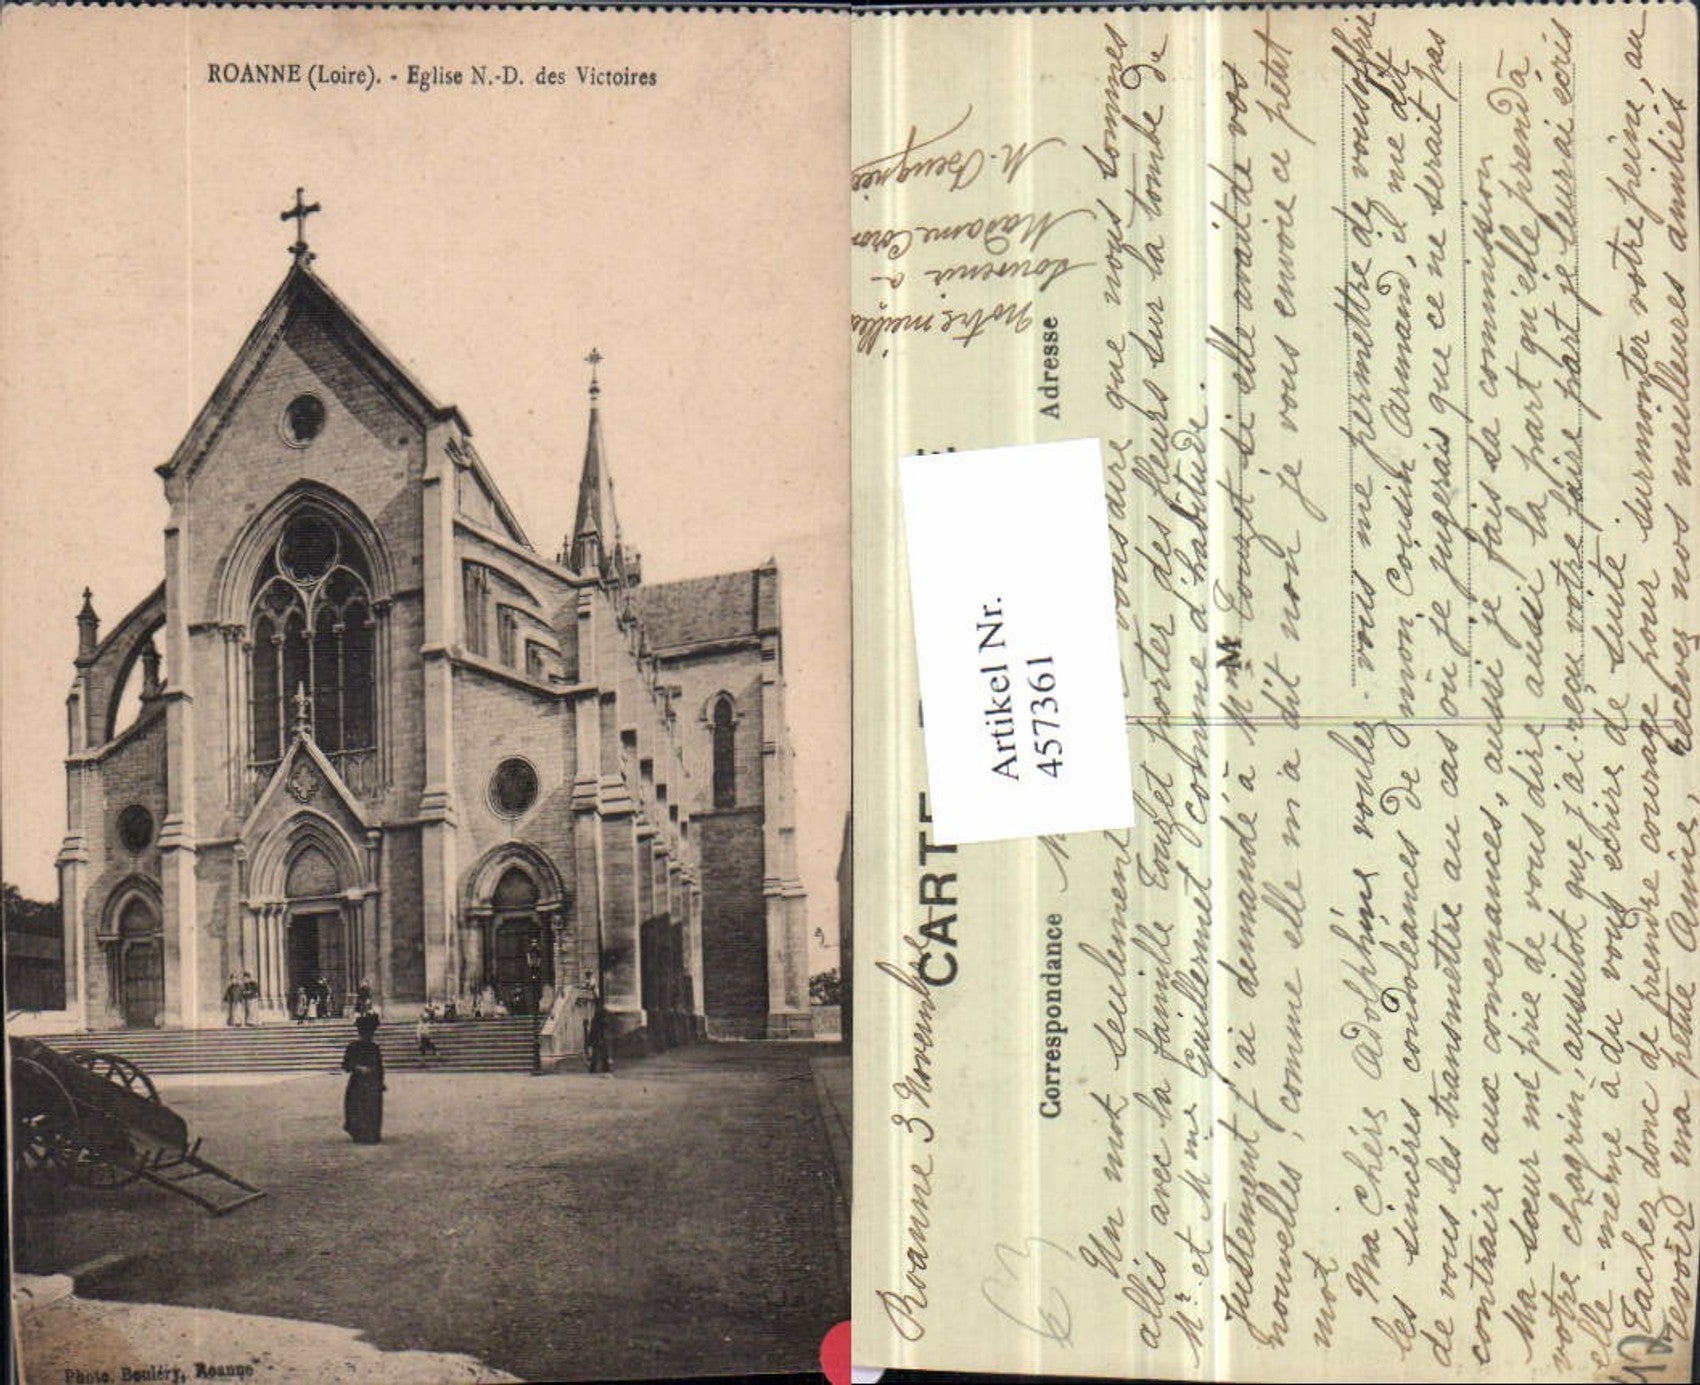 ROANNE (Loire). - Eglise N.-D. des Victoires
Photo. Bouléry, Roanne
Roanne 3 Novembre
CARTE
Correspondance
Adresse
Artikel Nr.
457361
M
notre meille
souvenir a
Madame Coron
Un mot seulement vous dire que nous sommes
allés avec la famille Touzet porter des fleurs sur la tombe de
Mr et Mme Guillermet comme d'habitude.
Justement j'ai demandé à Mme Touzet si elle avait de vos
nouvelles, comme elle m'a dit non je vous envoie ce petit
mot
Ma chère Adolphine voulez-vous me permettre de vous offrir
les sincères condoléances de mon cousin Armand, il me dit
de vous les transmettre au cas où je jugerais que ce ne serait pas
contraire aux convenances, aussi je fais sa commission
Ma sœur me prie de vous dire aussi la part qu'elle prend à
votre chagrin, aussitot que j'ai reçu votre faire part je leur ai écris
elle-même a du vous écrire de suite
Tachez donc de prendre courage pour surmonter votre peine, au
revoir ma petite Amie, recevez nos meilleures amitiés